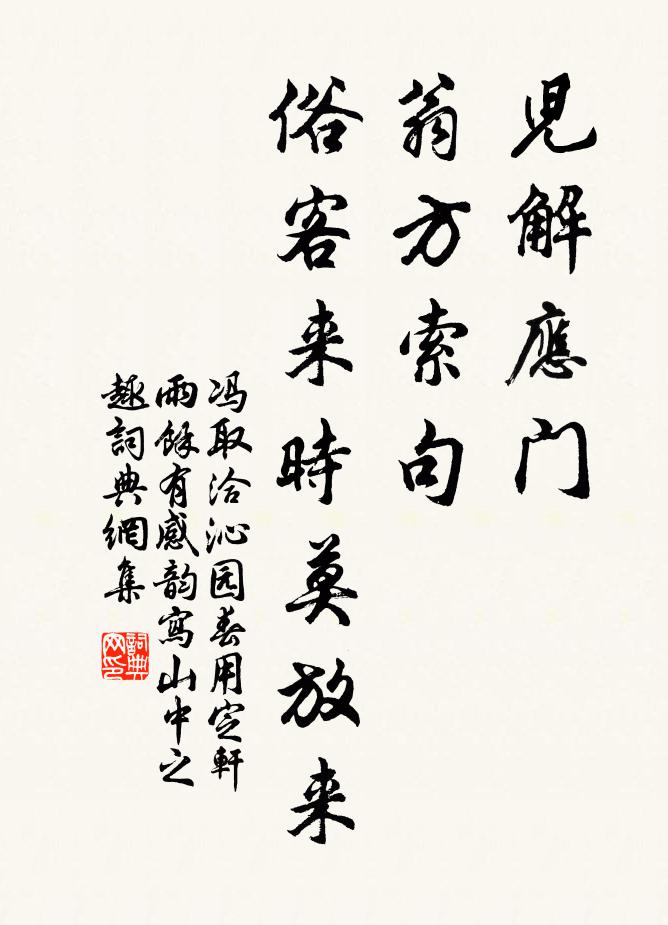 児解應門
翁方索句
俗客来時莫放来
冯取洽沁园春用定軒
雨餘有感韵寫山中之
趣詞典網集
詞典网印